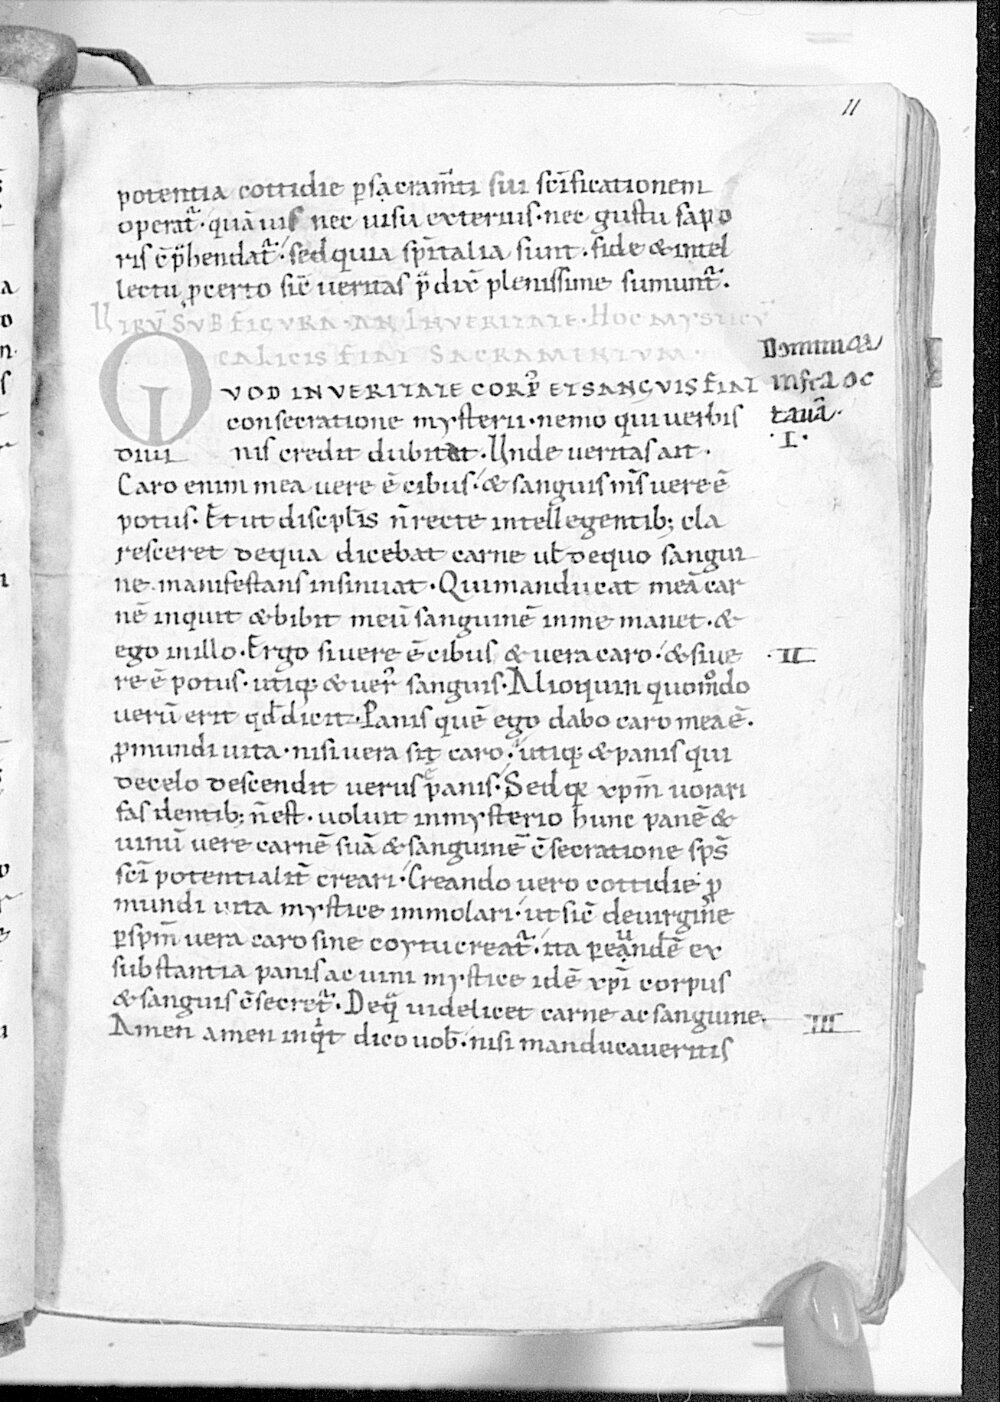 11
potentia cottidie p̄ sacram̄ti sui sc̄ificationem
operat᷑. quāuis nec uisu exterius. nec gustu sapo
ris cōp̄hendat᷑. sed quia sp̄italia sunt. fide & intel
lectu p̄certo sic̄ ueritas p̄dix̄ plenissime sumunt᷑.
Utrū sub figura. an in veritate. Hoc mysticū
calicis fiat sacramentum.
Quod in veritate corp᷒ et sanguis fiat
consecratione mysterii. nemo qui uerbis
diui nis credit dubitat. Unde ueritas ait.
Dominica
infra oc
tauā.
.I.
Caro enim mea uere ē cibus. & sanguis m̄s uere ē
potus. Et ut discipl̄is n̄ recte intellegentib; cla
resceret de qua dicebat carne ul̄ de quo sangui
ne. manifestans insinuat. Qui manducat meā car
nē inquit & bibit meū sanguinē in me manet. &
ego in illo. Ergo si uere ē cibus & uera caro. & si ue
.II.
re ē potus. utiq; & uer᷒ sanguis. Alioquin quomodo
uerū erit qd̄ dicit. Panis quē ego dabo caro mea ē.
p̄ mundi uita. nisi uera sit caro. utiq; & panis qui
de celo descendit uerus panis. Sed q; xp̄m uorari
fas dentib; n̄ est. uoluit in mysterio hunc panē &
uinū uere carnē suā & sanguinē c̄secratione sp̄s
sc̄i potentialit̄ creari. Creando uero cottidie p̄
mundi uita mystice immolari. ut sic̄ de uirgine
p̄ sp̄m uera caro sine coytu creat᷑. ita p̄ eandē ex
substantia panis ac uini mystice idē xp̄i corpus
& sanguis c̄secret᷑. De q̄ uidelicet carne ac sanguine.
.III.
Amen amen inqⁱt dico uob̄. nisi manducaueritis